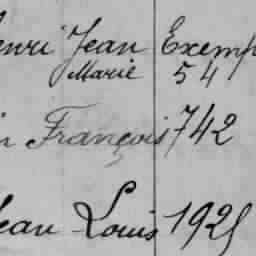 Henri Jean Exemp
Marie 54
in François 742
Jean Louis 1925